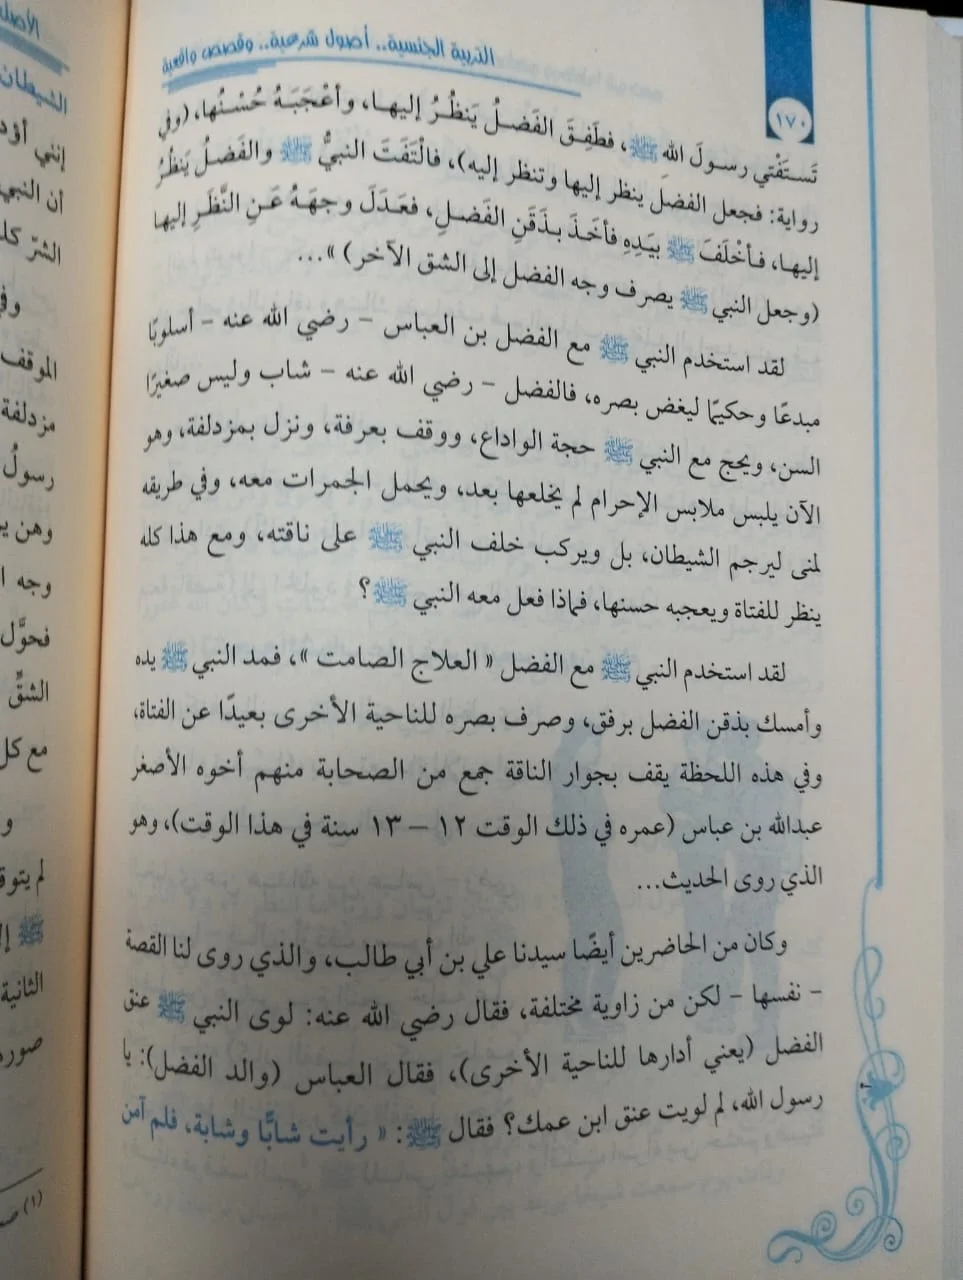 التربية الجنسية.. أصول شرعية.. وقصص واقعية
١٧٠
تَستَفْتي رسولَ اللهِ ﷺ، فطَفِقَ الفَضلُ يَنظُرُ إليها، وأعْجَبَهُ حُسْنُها، (وفي
رواية: فجعل الفضل ينظر إليها وتنظر إليه)، فالْتَفَتَ النبيُّ ﷺ والفَضلُ يَنظُرُ
إليها، فأخْلَفَ ﷺ بيَدِهِ فأخَذَ بذَقَنِ الفَضلِ، فعَدَلَ وجهَهُ عَنِ النَّظَرِ إليها
(وجعل النبي ﷺ يصرف وجه الفضل إلى الشق الآخر) »...
لقد استخدم النبي ﷺ مع الفضل بن العباس – رضي الله عنه – أسلوبًا
مبدعًا وحكيمًا ليغض بصره، فالفضل – رضي الله عنه – شاب وليس صغيرًا
السن، ويحج مع النبي ﷺ حجة الواداع، ووقف بعرفة، ونزل بمزدلفة، وهو
الآن يلبس ملابس الإحرام لم يخلعها بعد، ويحمل الجمرات معه، وفي طريقه
لمنى ليرجم الشيطان، بل ويركب خلف النبي ﷺ على ناقته، ومع هذا كله
ينظر للفتاة ويعجبه حسنها، فماذا فعل معه النبي ﷺ؟
لقد استخدم النبي ﷺ مع الفضل « العلاج الصامت »، فمد النبي ﷺ يده
وأمسك بذقن الفضل برفق، وصرف بصره للناحية الأخرى بعيدًا عن الفتاة،
وفي هذه اللحظة يقف بجوار الناقة جمع من الصحابة منهم أخوه الأصغر
عبدالله بن عباس (عمره في ذلك الوقت ١٢ – ١٣ سنة في هذا الوقت)، وهو
الذي روى الحديث...
وكان من الحاضرين أيضًا سيدنا علي بن أبي طالب، والذي روى لنا القصة
– نفسها – لكن من زاوية مختلفة، فقال رضي الله عنه: لوى النبي ﷺ عنق
الفضل (يعني أدارها للناحية الأخرى)، فقال العباس (والد الفضل): يا
رسول الله، لم لويت عنق ابن عمك؟ فقال ﷺ: « رأيت شابًّا وشابة، فلم آمن
الشيطان
إنني
أن النبي
الشرّ
الموقف
مزدلفة
رسولُ
وهن
وجه
فحوَّل
الشقِّ
مع
الثانية
(١)